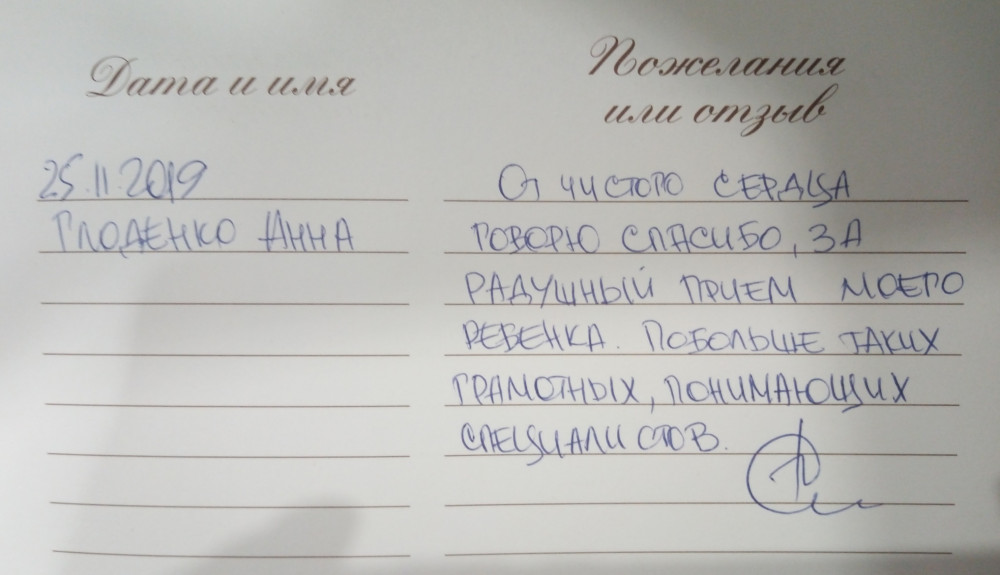 Дата и имя
Пожелания
или отзыв
25.11.2019
Глоденко Анна
От чистого сердца
говорю спасибо, за
радушный прием моего
ребенка. Побольше таких
грамотных, понимающих
специалистов.